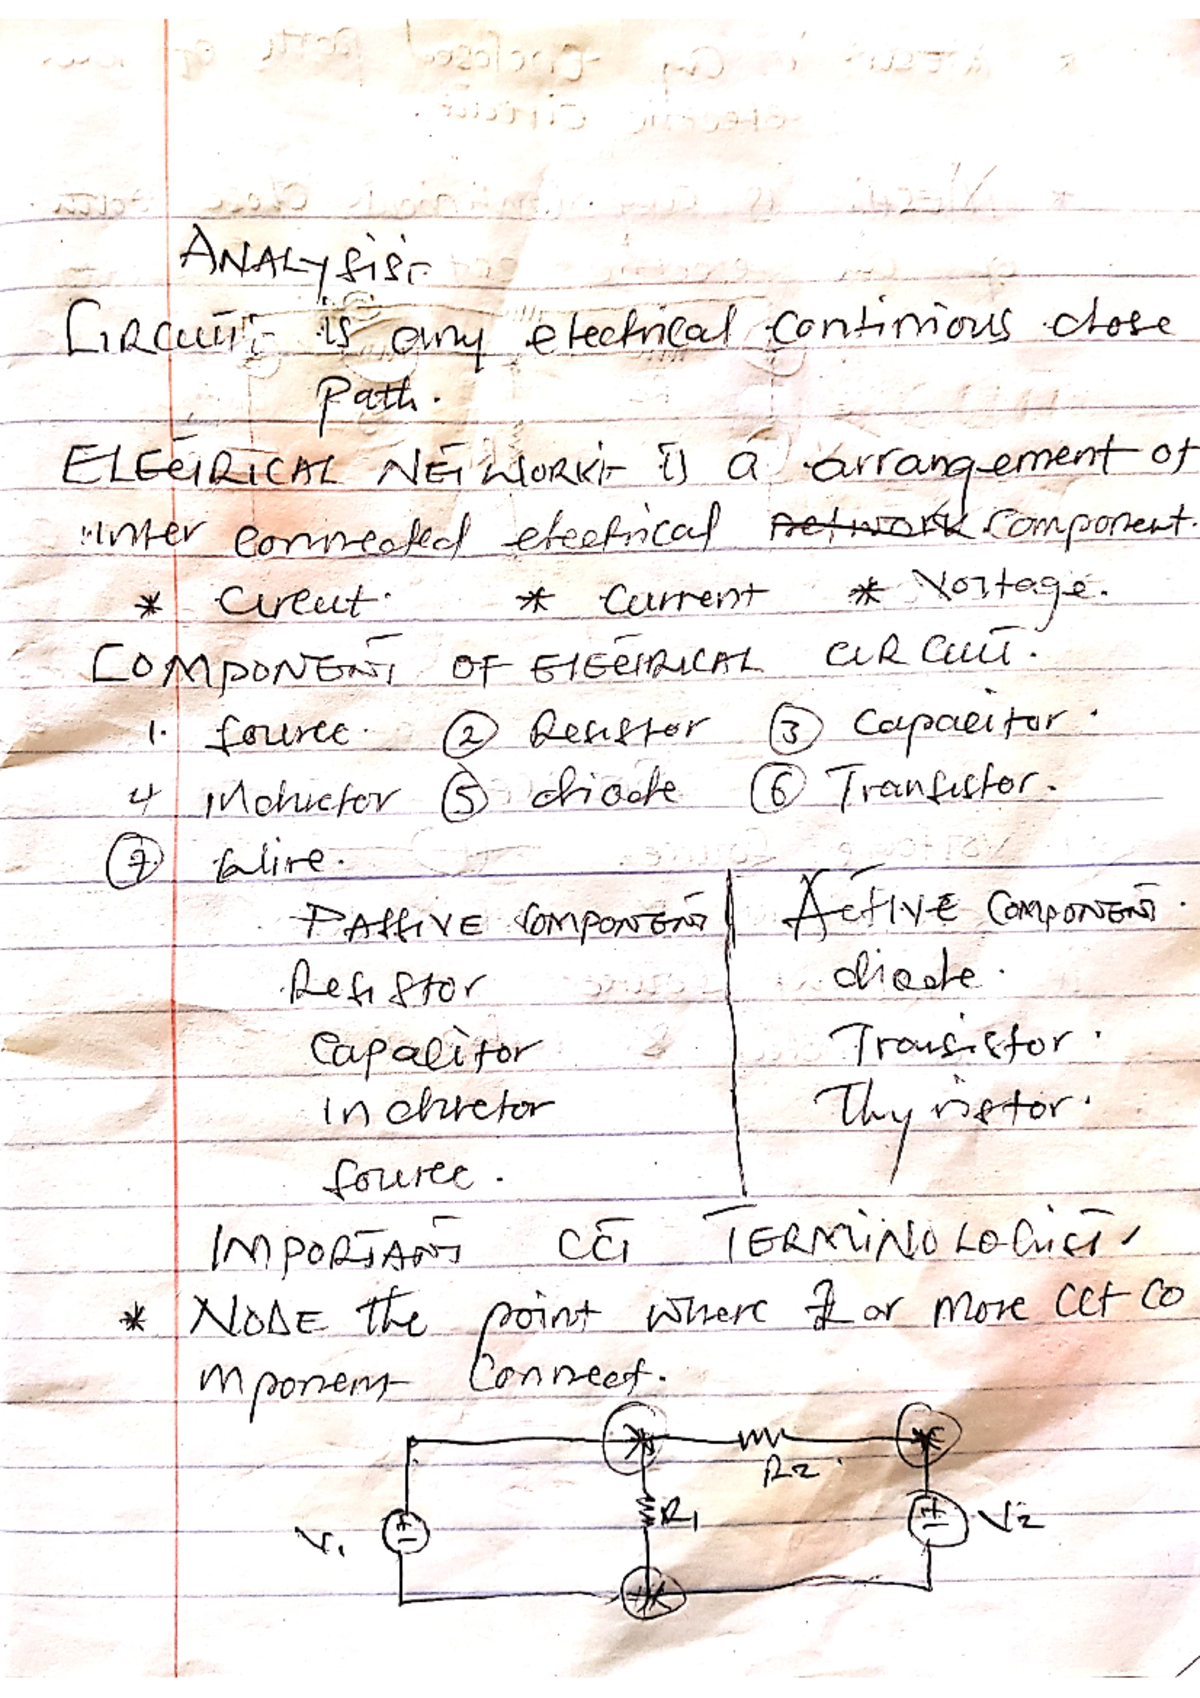 ANALYSIS:-
CIRCUIT:- is any electrical continious close
path.
ELECTRICAL NETWORK:- is a arrangement of
inter connected electrical network component.
* Circuit. * Current * Voltage.
COMPONENT OF ELECTRICAL CIRCUIT.
1. Source. ② Resistor ③ Capacitor.
4 inductor ⑤ diode ⑥ Transistor.
⑦ Wire.
PASSIVE COMPONENT ACTIVE COMPONENT.
Resistor diode.
Capacitor Transistor.
inductor Thyristor.
Source.
IMPORTANT CCT TERMINOLOGIST
* NODE the point where 2 or more CCT CO
mponent Connect.
R2
V1 R1 V2